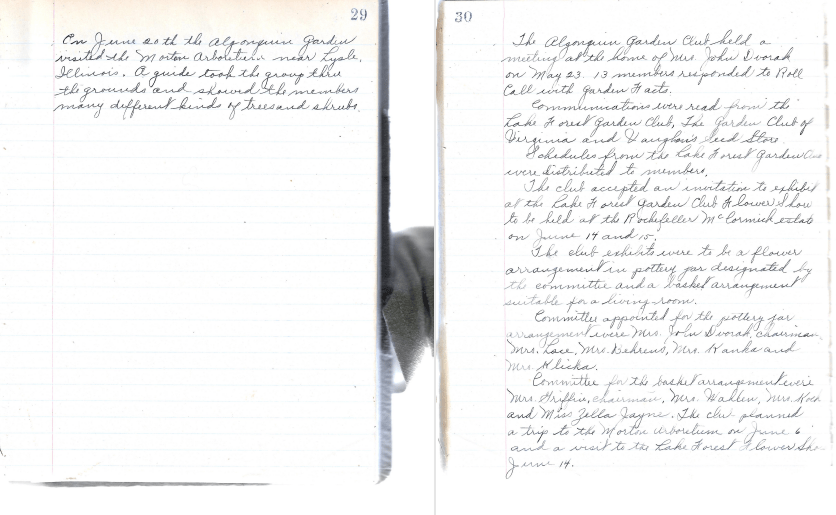 29
On June 20th the Algonquin Garden
visited the Morton Arboretum near Lysle,
Illinois. A guide took the group thru
the grounds and showed the members
many different kinds of trees and shrubs.
30
The Algonquin Garden Club held a
meeting at the home of Mrs. John Dvorak
on May 23. 13 members responded to Roll
Call with Garden Facts.
Communications were read from the
Lake Forest Garden Club, The Garden Club of
Virginia and Vaughan's Seed Store.
Schedules from the Lake Forest Garden
were distributed to members.
The club accepted an invitation to exhibit
at the Lake Forest Garden Club Flower Show
to be held at the Rockefeller McCormick estate
on June 14 and 15.
The club exhibits were to be a flower
arrangement in pottery jar designated by
the committee and a basket arrangement
suitable for a living-room.
Committee appointed for the pottery jar
arrangement were Mrs. John Dvorak, chairman,
Mrs. Mrs. Behrens, Mrs. Kanka and
Mrs. Klicka.
Committee for the basket arrangement were
Mrs. Griffin, chairman, Mrs. Wahlen, Mrs. Koch
and Miss Zella Jayne. The club planned
a trip to the Morton Arboretum on June 6
and a visit to the Lake Forest Flower Sho
June 14.